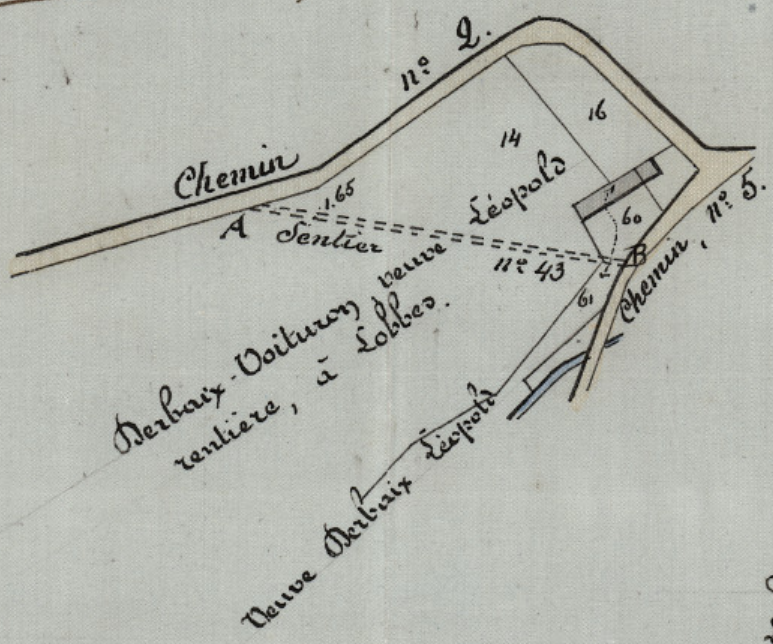 Chemin nº 2.
16
14
1.65
A Sentier nº 43 B
60
61
Chemin, nº 5.
Derbaix-Voituron, veuve Léopold
rentière, à Lobbes.
Veuve Derbaix Léopold